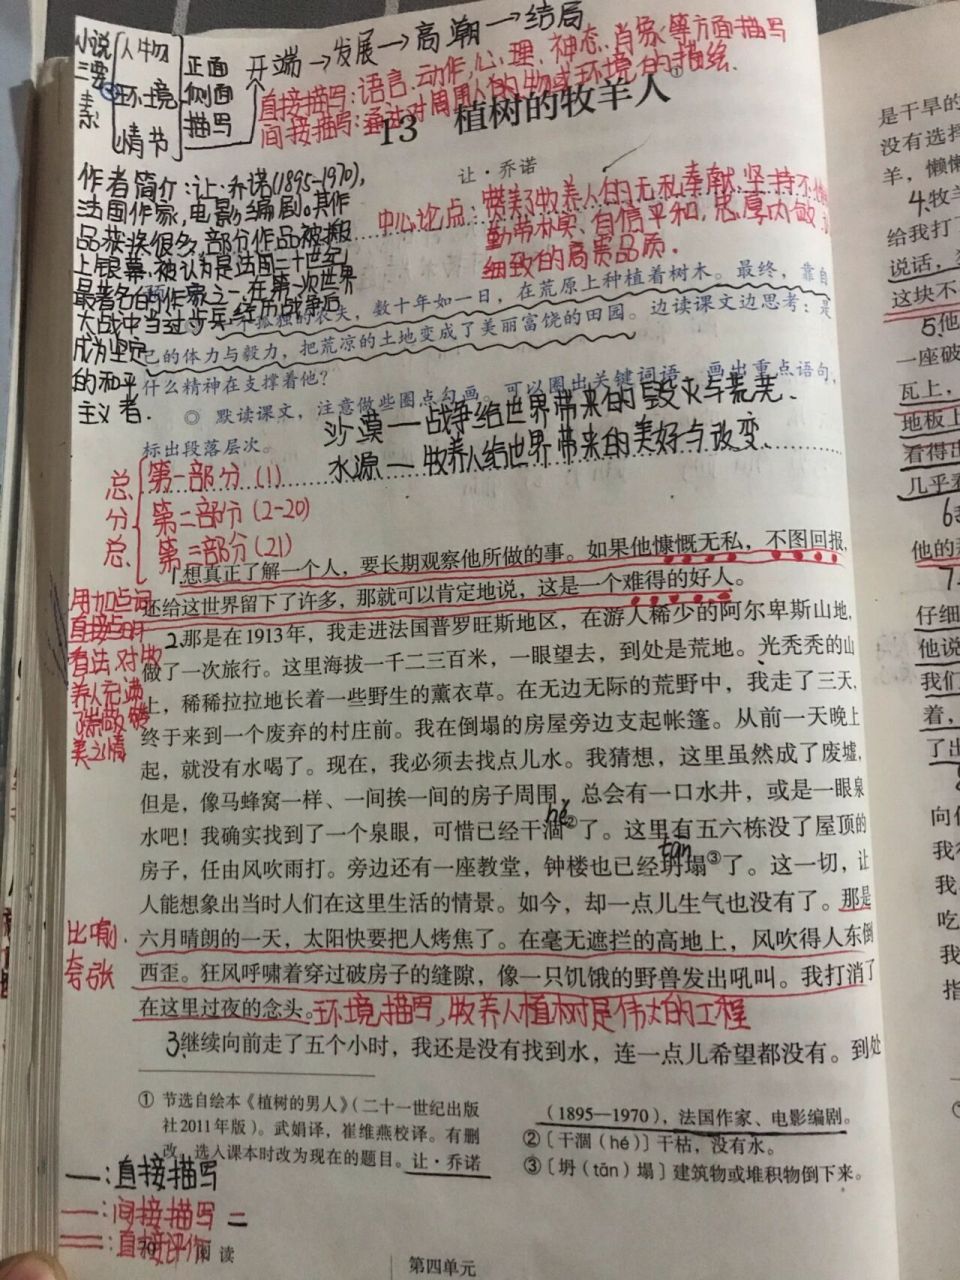 小说三要素
人物
环境
情节
正面
侧面
描写
开端→发展→高潮→结局
直接描写:语言、动作、心理、神态、肖象等方面描写
间接描写:通过对周围人的物或环境的描绘.
13 植树的牧羊人①
让·乔诺
作者简介:让·乔诺(1895-1970),
法国作家,电影编剧。其作
品获奖很多,部分作品被搬
上银幕,被认为是法国二十世纪
最著名的作家之一,在第一次世界
大战中当过步兵,经历战争后
成为坚定
的和平
主义者.
中心论点:赞美了牧养人的无私奉献、坚持不
勤劳朴实、自信平和,忠厚内敛
细致的高贵品质.
一个孤独的农夫,数十年如一日,在荒原上种植着树木。最终,靠自
己的体力与毅力,把荒凉的土地变成了美丽富饶的田园。边读课文边思考:是
什么精神在支撑着他?
◎ 默读课文,注意做些圈点勾画。可以圈出关键词语,画出重点语句,
标出段落层次。
沙漠—战争给世界带来的毁灭与荒芜.
水源—牧养人给世界带来的美好与改变.
总分总
第一部分(1)
第二部分(2-20)
第三部分(21)
1.想真正了解一个人,要长期观察他所做的事。如果他慷慨无私,不图回报,
还给这世界留下了许多,那就可以肯定地说,这是一个难得的好人。
用加点词
直接点明
看法,对牧
养人充满
美之情
2.那是在1913年,我走进法国普罗旺斯地区,在游人稀少的阿尔卑斯山地,
做了一次旅行。这里海拔一千二三百米,一眼望去,到处是荒地。光秃秃的山
上,稀稀拉拉地长着一些野生的薰衣草。在无边无际的荒野中,我走了三天,
终于来到一个废弃的村庄前。我在倒塌的房屋旁边支起帐篷。从前一天晚上
起,就没有水喝了。现在,我必须去找点儿水。我猜想,这里虽然成了废墟,
但是,像马蜂窝一样、一间挨一间的房子周围,总会有一口水井,或是一眼泉
hé
水吧!我确实找到了一个泉眼,可惜已经干涸②了。这里有五六栋没了屋顶的
tān
房子,任由风吹雨打。旁边还有一座教堂,钟楼也已经坍塌③了。这一切,让
人能想象出当时人们在这里生活的情景。如今,却一点儿生气也没有了。那是
比喻.
夸张
六月晴朗的一天,太阳快要把人烤焦了。在毫无遮拦的高地上,风吹得人东倒
西歪。狂风呼啸着穿过破房子的缝隙,像一只饥饿的野兽发出吼叫。我打消了
在这里过夜的念头。环境描写,牧养人植树是伟大的工程
3.继续向前走了五个小时,我还是没有找到水,连一点儿希望都没有。到处
① 节选自绘本《植树的男人》(二十一世纪出版
社2011年版)。武娟译,崔维燕校译。有删
改。选入课本时改为现在的题目。让·乔诺
(1895—1970),法国作家、电影编剧。
②〔干涸(hé)〕干枯,没有水。
③〔坍(tān)塌〕建筑物或堆积物倒下来。
—:直接描写
—:间接描写
=:直接评价
70 阅读
第四单元
是干旱的
没有选择
羊,懒懒
4.牧羊
给我打了
说话,
这块不
5.他
一座破
瓦上,
地板上
看得出
几乎看
他的
7.
仔细
他说
我们
着,
了出
向
我
我
吃
我
指